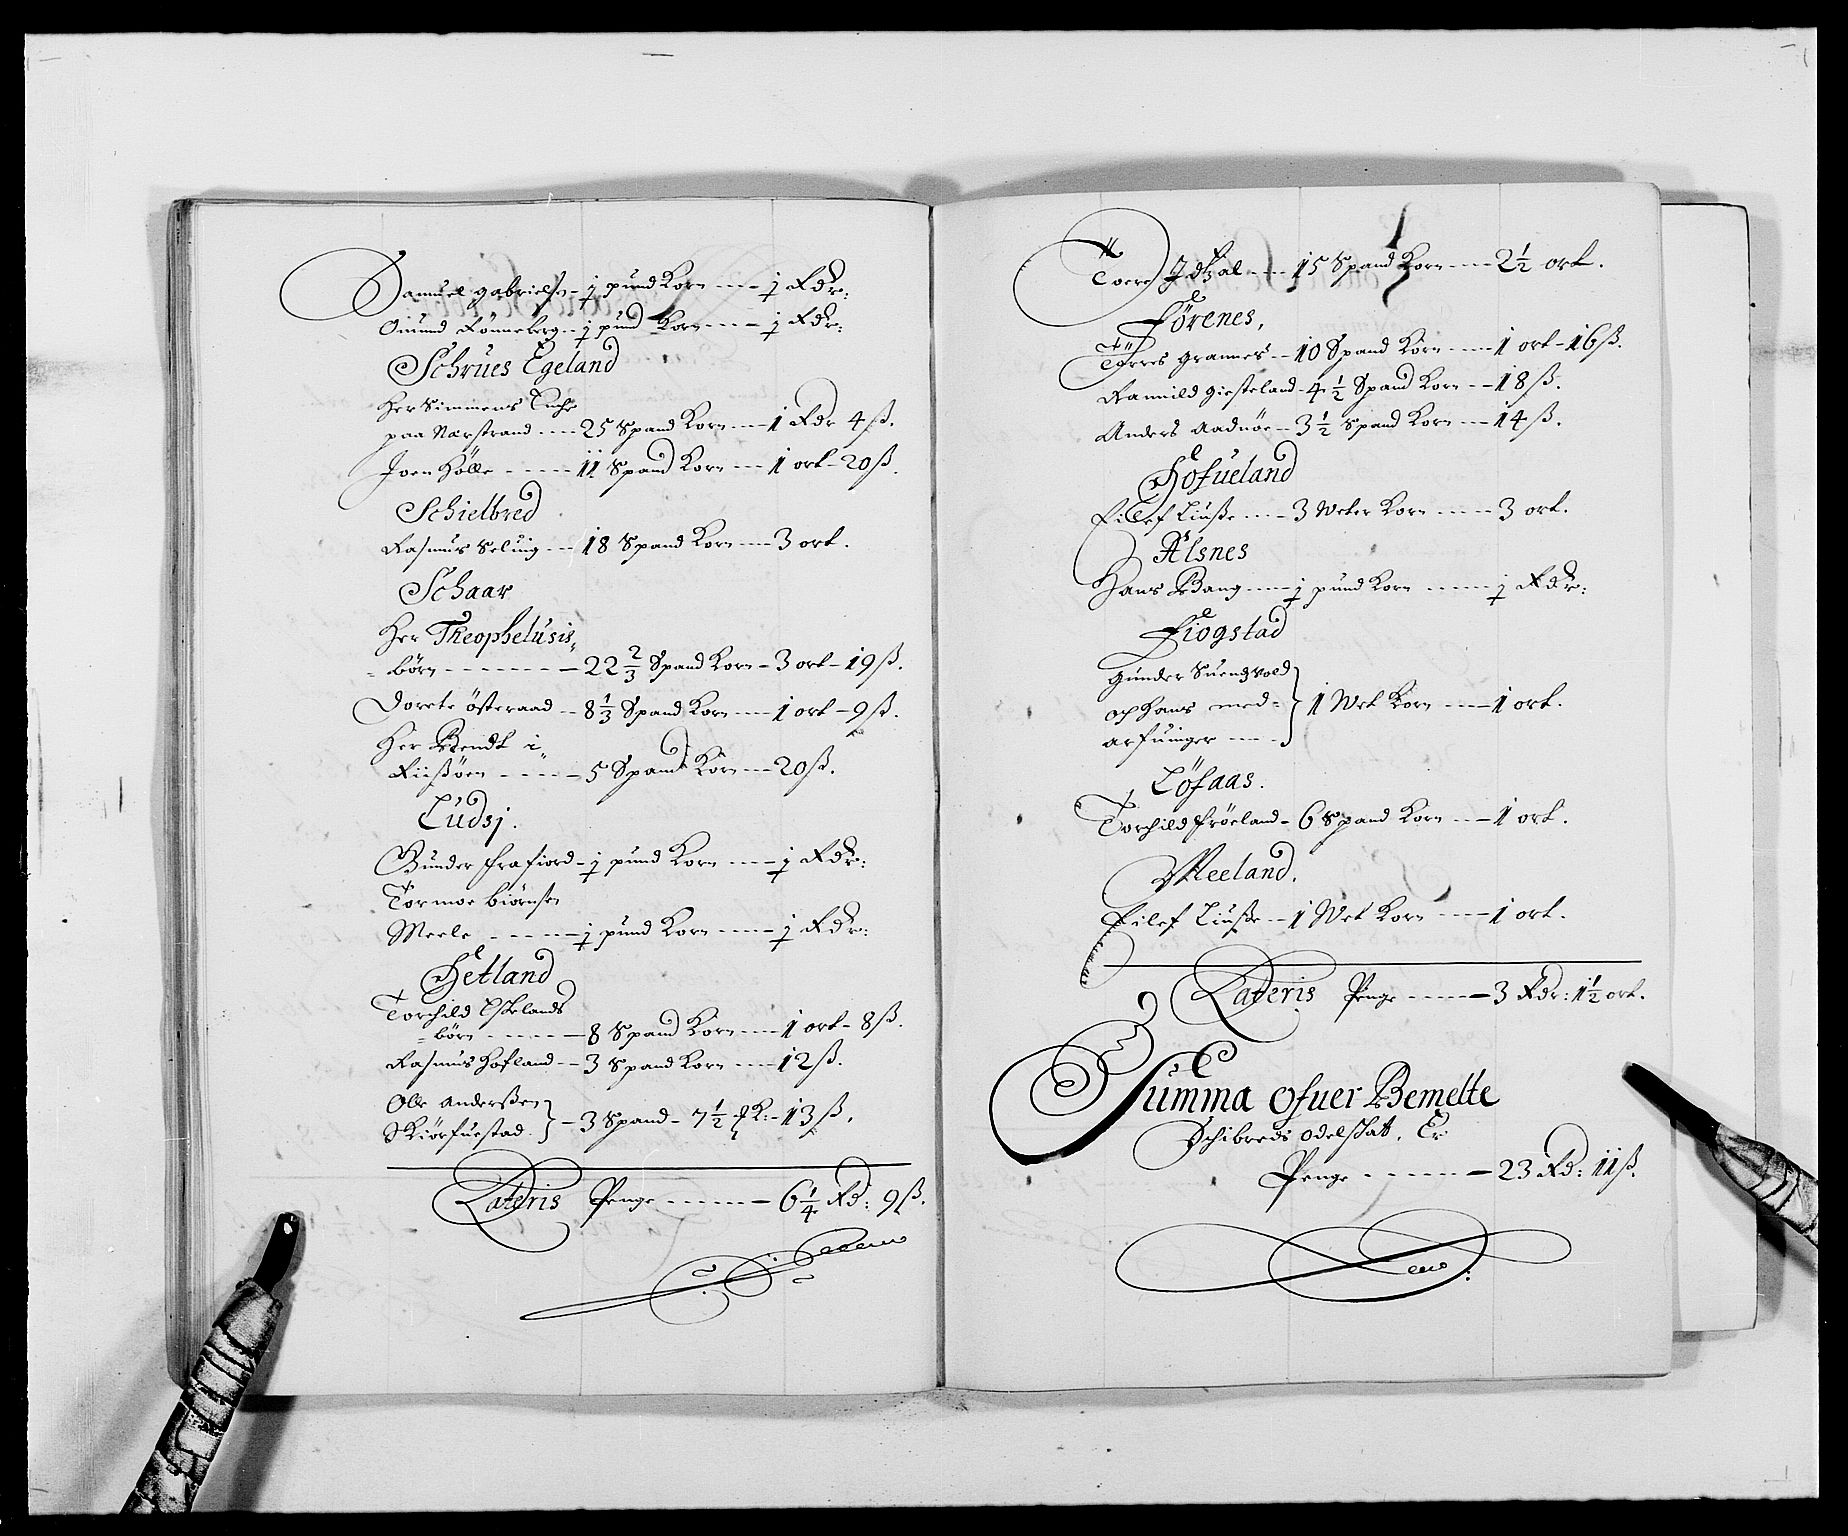 Samuel Gabrielsen - j pund Korn - j Rdr:
Omund Rönneberg - j pund Korn - j Rdr:
Schrues Egeland
Her Simmens Enche
paa Narstrand - 25 Spand Korn - 1 Rdr 4 ß.
Joen Hölle - 11 Spand Korn - 1 ort - 20 ß.
Schielbred
Rasmus Seluig - 18 Spand Korn - 3 ort.
Schaar
Her Theophelusis
börn - 22 2/3 Spand Korn - 3 ort - 19 ß.
Dorete österaad - 8 1/3 Spand Korn - 1 ort - 9 ß.
Her Bendt i
- 5 Spand Korn - 20 ß.
Ludsj.
Gunder frafiord - j pund Korn - j Rdr:
Tormoe Biörnsen
Meele - j pund Korn - j Rdr:
Hetland
Torchild Eskelands
börn - 8 Spand Korn - 1 ort - 8 ß.
Rasmus Hofland - 3 Spand Korn - 12 ß.
Olle Anderßen
Skiörfuestad - 3 Spand - 7 1/2 - 13 ß.
Lateris Penge - 6 1/4 Rd: 9 ß.
Toere Idtzal - 15 Spand Korn - 2 1/2 ort.
Förenes,
Törres Grannes - 10 Spand Korn - 1 ort - 16 ß.
Rannild Giesteland - 4 1/2 Spand Korn - 18 ß.
Anders Aadnöe - 3 1/2 Spand Korn - 14 ß.
Hofueland
Eilef Liuße - 3 Weter Korn - 3 ort.
Alsnes
Hans Bang - j pund Korn - j Rdr:
Fiogstad
Gunder Suendzvold
och Hans med=
arfuinger - 1 Wet Korn - 1 ort.
Löfaas.
Torchild fröeland - 6 Spand Korn - 1 ort.
Meeland.
Eilef Liuße - 1 Wet Korn - 1 ort.
Lateris Penge - 3 Rdr: 1 1/2 ort.
Summa Ofuer Bemelte
Schibreds Odelskatt, Er
Penge - 23 Rd: 11 ß.